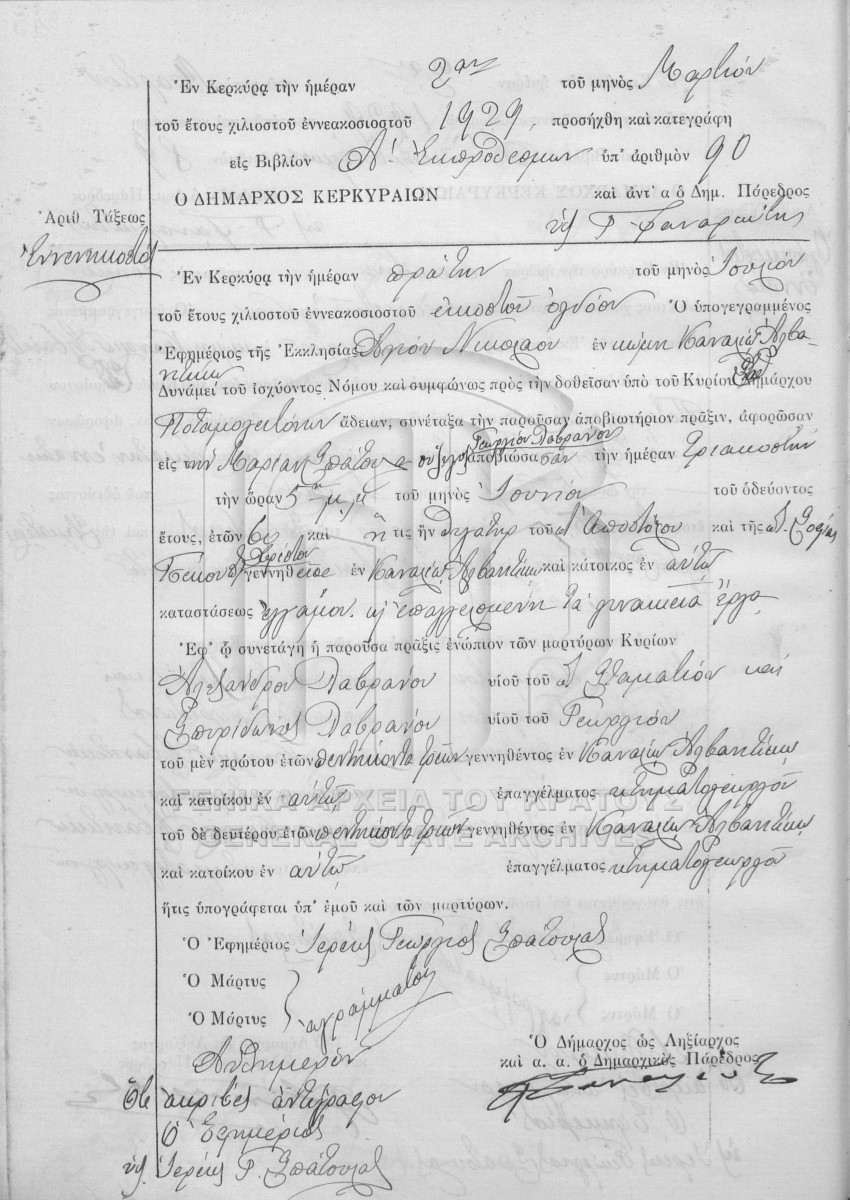 Ἐν Κερκύρᾳ τὴν ἡμέραν 2αν τοῦ μηνὸς Μαρτίου
τοῦ ἔτους χιλιοστοῦ ἐννεακοσιοστοῦ 1929, προσήχθη καὶ κατεγράφη
εἰς Βιβλίον Α' Ἐκπροθέσμων ὑπ' ἀριθμὸν 90
Ο ΔΗΜΑΡΧΟΣ ΚΕΡΚΥΡΑΙΩΝ καὶ ἀντ' α ὁ Δημ. Πάρεδρος
Ἀριθ. Τάξεως
Ἐννενηκοστὸς
Ἐν Κερκύρᾳ τὴν ἡμέραν πρώτην τοῦ μηνὸς Ἰουλίου
τοῦ ἔτους χιλιοστοῦ ἐννεακοσιοστοῦ εἰκοστοῦ ὀγδόου Ὁ ὑπογεγραμμένος
Ἐφημέριος τῆς Ἐκκλησίας Ἁγίου Νικολάου ἐν κώμῃ Καναλίων
Δυνάμει τοῦ ἰσχύοντος Νόμου καὶ συμφώνως πρὸς τὴν δοθεῖσαν ὑπὸ τοῦ Κυρίου Δημάρχου
Ποταμογειτόνων ἄδειαν, συνέταξα τὴν παροῦσαν ἀποβιωτήριον πρᾶξιν, ἀφορῶσαν
Γεωργίου Λαβράνου
εἰς τὴν Μαρίαν ἀποβιώσασαν τὴν ἡμέραν τριακοστὴν
τὴν ὥραν 5 μ.μ τοῦ μηνὸς Ἰουνίου τοῦ ὁδεύοντος
ἔτους, ἐτῶν καὶ ἥτις ἦν θυγάτηρ τοῦ Ἀποστόλου καὶ τῆς Σοφίας
Χρίστου
γεννηθεῖσα ἐν καὶ κάτοικος ἐν αὐτῷ
καταστάσεως ἐγγάμου. ἐπαγγελομένη τὰ γυναικεῖα ἔργα
Ἐφ' ᾧ συνετάγη ἡ παροῦσα πρᾶξις ἐνώπιον τῶν μαρτύρων Κυρίων
Ἀλεξάνδρου Λαβράνου υἱοῦ τοῦ Σταματίου καὶ
Σπυρίδωνος Λαβράνου υἱοῦ τοῦ Γεωργίου
τοῦ μὲν πρώτου ἐτῶν πεντήκοντα τριῶν γεννηθέντος ἐν
καὶ κατοίκου ἐν αὐτῷ ἐπαγγέλματος κτηματογεωργοῦ
ΓΕΝΙΚΑ ΑΡΧΕΙΑ ΤΟΥ ΚΡΑΤΟΥΣ
τοῦ δὲ δευτέρου ἐτῶν πεντήκοντα τριῶν γεννηθέντος ἐν
GENERAL STATE ARCHIVES
καὶ κατοίκου ἐν αὐτῷ ἐπαγγέλματος κτηματογεωργοῦ
ἥτις ὑπογράφεται ὑπ' ἐμοῦ καὶ τῶν μαρτύρων.
Ὁ Ἐφημέριος Ἱερεὺς Γεώργιος Σπάτουλας
Ὁ Μάρτυς
ἀγράμματοι
Ὁ Μάρτυς
Αὐθημερόν
Ὁ Δήμαρχος ὡς Ληξίαρχος
καὶ α. α. ὁ Δημαρχικὸς Πάρεδρος
ἀκριβὲς ἀντίγραφον
Ὁ Ἐφημέριος
Ἱερεὺς Γ. Σπάτουλας